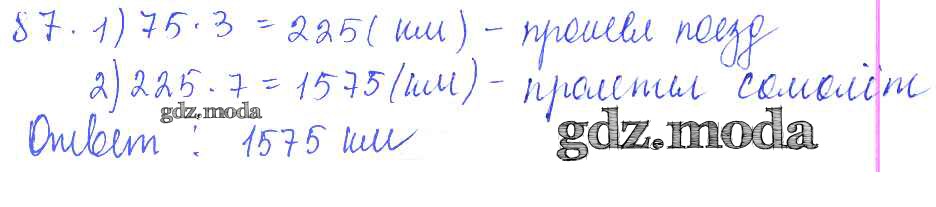 87. 1) 75 · 3 = 225 (км) - прошел поезд
2) 225 · 7 = 1575 (км) - пролетил самолёт
gdz.moda
Ответ : 1575 км
gdz.moda